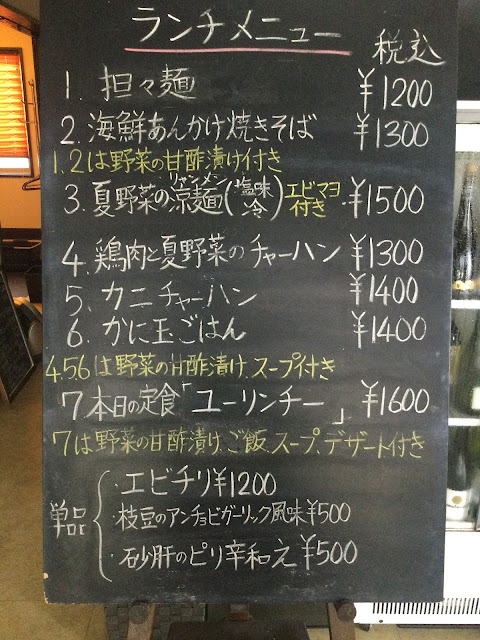 ランチメニュー
税込
1. 担々麺 ¥1200
2. 海鮮あんかけ焼きそば ¥1300
1.2は野菜の甘酢漬け付き
リャンメン
3. 夏野菜の涼麺(塩味冷)エビマヨ付き・¥1500
4. 鶏肉と夏野菜のチャーハン ¥1300
5. カニチャーハン ¥1400
6. かに玉ごはん ¥1400
4.5.6は野菜の甘酢漬け、スープ付き
7 本日の定食「ユーリンチー」 ¥1600
7は野菜の甘酢漬け、ご飯、スープ、デザート付き
単品
・エビチリ¥1200
・枝豆のアンチョビガーリック風味¥500
・砂肝のピリ辛和え¥500